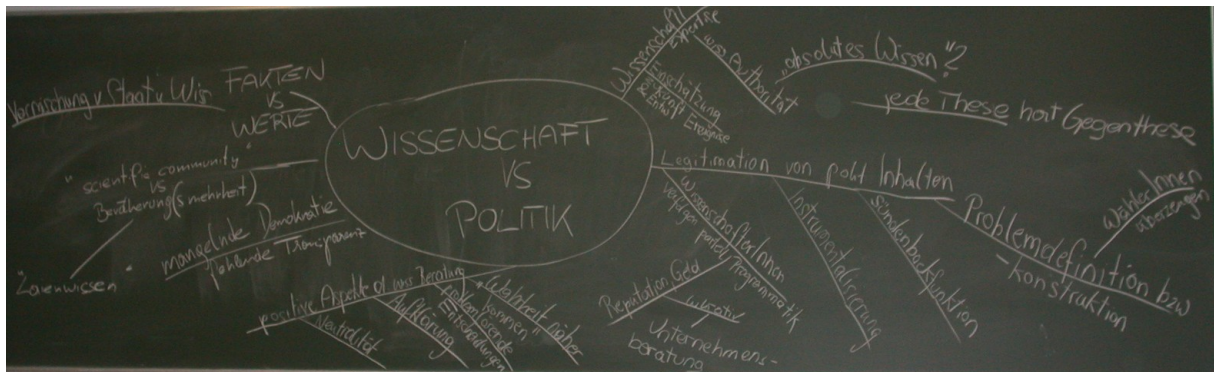 WISSENSCHAFT
VS
POLITIK
FAKTEN
VS
WERTE
Vermischung v Staat v Wis
"scientific community"
VS
Bevölkerung(smehrheit)
"Laienwissen"
mangelnde Demokratie
fehlende Transparenz
positive Aspekte d wiss Beratung
Neutralität
Aufklärung
problemlösende
Entscheidungen
"Wahrheit" näher
kommen
Wissenschaftl
Expertise
Einschätzung
zukünft Ereignisse
& Entw
wiss Authorität
"absolutes Wissen"?
jede These hat Gegenthese
Legitimation von polit Inhalten
WissenschafterInnen
verfolgen parteil Programmatik
Reputation, Geld
lukrativ
Unternehmens-
beratung
Instrumentalisierung
Sündenbockfunktion
Problemdefinition bzw
- konstruktion
WählerInnen
überzeugen